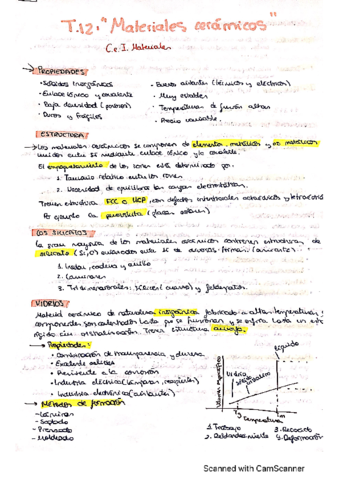 T.12: "Materiales cerámicos"
C e I. Materiales
→ PROPIEDADES
· Sólidos inorgánicos
· Enlace iónico y covalente
· Baja densidad (porosos)
· Duros y frágiles
· Buenos aislantes (térmicos y eléctricos)
· Muy estables
· Temperatura de fusión altas
· Precio variable.
ESTRUCTURA
→ Los materiales cerámicos se componen de elementos metálicos y no metálicos
unidos entre sí mediante enlace iónico y/o covalente.
El empaquetamiento de los iones está determinado por:
1. Tamaño relativo entre los iones.
2. Necesidad de equilibrar las cargas electrostáticas.
FCC o HCP, con defectos intersticiales octaédricos y tetraédricos
Ejemplo la perovskita
LOS SILICATOS
La gran mayoría de los materiales cerámicos contienen estructuras de
silicato
1. Islas, cadena y anillo
2. Laminares
3. Tridimensionales: Sílice (cuarzo) y feldespatos.
VIDRIOS
Material cerámico de naturaleza inorgánica fabricado a altas temperaturas,
componentes son calentados hasta que se fusionan y se enfría hasta un estado
rígido sin cristalización. Tienen estructura amorfa.
→ Propiedades:
· Combinación de transparencia y dureza.
· Excelente
· Resistente a la corrosión
· Industria eléctrica
· Industria electrónica (aislantes)
→ Métodos de formación
- Láminas
- Soplado
- Prensado
- Moldeado
Volumen específico
Vidrio
Líquido
Tg
Tm
Temperatura
1. Trabajo
2. Reblandecimiento
3. Recocido
4. Deformación
Scanned with CamScanner